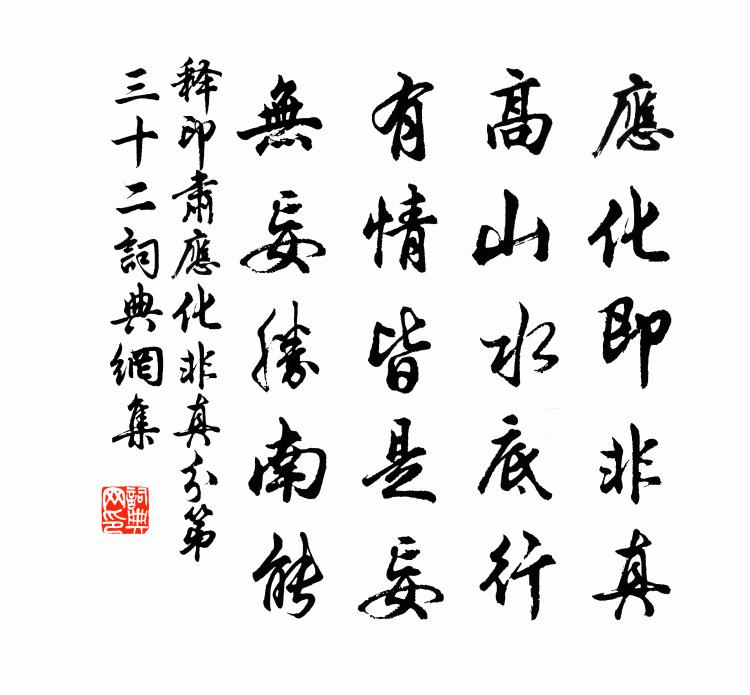 應化即非真
高山水底行
有情皆是妄
無妄勝南能
释印肅應化非真分第
三十二詞典網集
詞典
网印